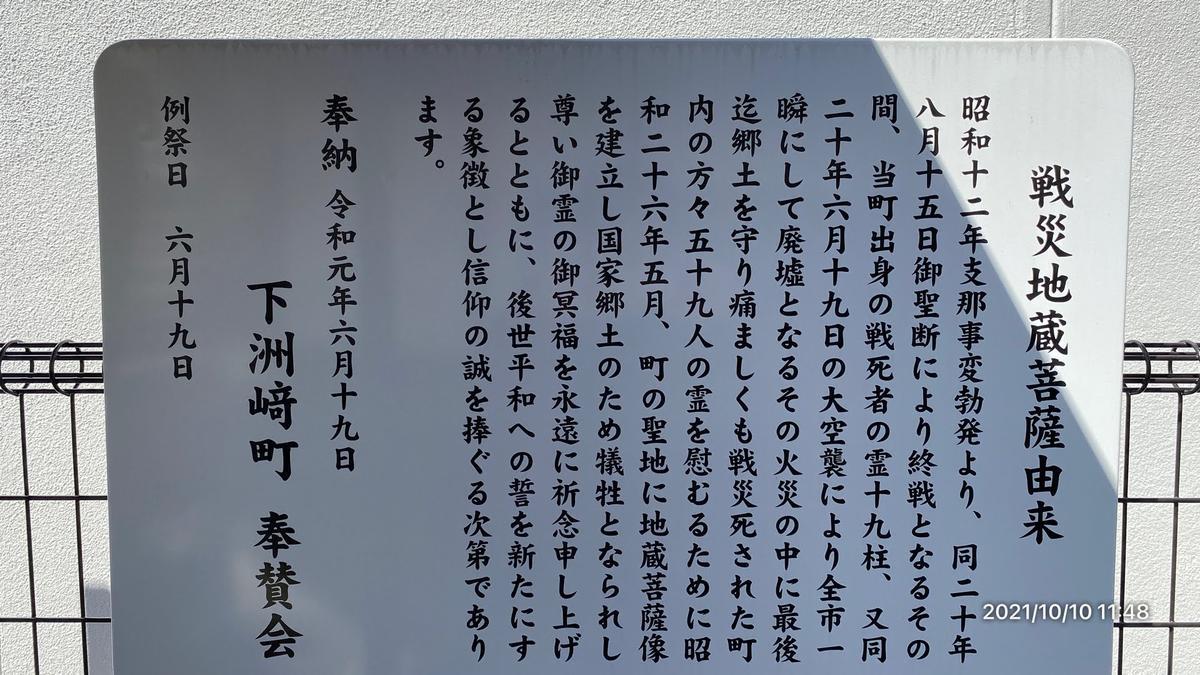 戦災地蔵菩薩由来
昭和十二年支那事変勃発より、同二十年
八月十五日御聖断により終戦となるその
間、当町出身の戦死者の霊十九柱、又同
二十年六月十九日の大空襲により全市一
瞬にして廃墟となるその火災の中に最後
迄郷土を守り痛ましくも戦災死された町
内の方々五十九人の霊を慰むるために昭
和二十六年五月、町の聖地に地蔵菩薩像
を建立し国家郷土のため犠牲となられし
尊い御霊の御冥福を永遠に祈念申し上げ
るとともに、後世平和への誓を新たにす
る象徴とし信仰の誠を捧ぐる次第であり
ます。
奉納 令和元年六月十九日
下洲﨑町 奉賛会
例祭日 六月十九日
2021/10/10 11:48